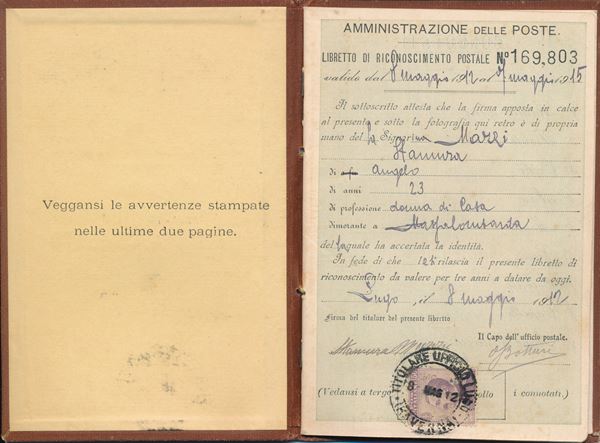 Veggansi le avvertenze stampate
nelle ultime due pagine.
AMMINISTRAZIONE DELLE POSTE.
LIBRETTO DI RICONOSCIMENTO POSTALE Nº 169,803
valido dal 8 maggio 1912 al 7 maggio 1915
Il sottoscritto attesta che la firma apposta in calce
al presente e sotto la fotografia qui retro è di propria
mano del la Signorina
Stamura
di Angelo
di anni 23
di professione donna di Casa
dimorante a Massalombarda
del la quale ha accertata la identità.
In fede di che rilascia il presente libretto di
riconoscimento da valere per tre anni a datare da oggi.
Lugo, il 8 maggio 1912
Firma del titolare del presente libretto
Il Capo dell' ufficio postale.
Stamura
(Vedansi a tergo i connotati.)
TITOLARE UFFICIO
8 MAG 12